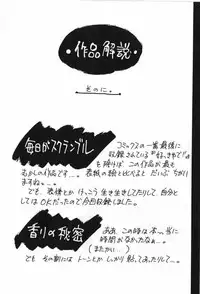 作品解説
その仁。
毎日がスクランブル
コミックスの一番最後に
収録されている"好きやで"
を除けば この作品が最も
むかしの作品です…。表紙の絵と比べると だいぶ ちがい
ますね…。
でも、表情とか けっこう 生き生きしてたりして、自分と
してはOKだったので 今回収録しました。
香りの秘密
ああ この時は、本当に
時間がなかったなぁ…。
(またかい…)
でも その割には トーンとか しっかり 貼ってあったりして…。